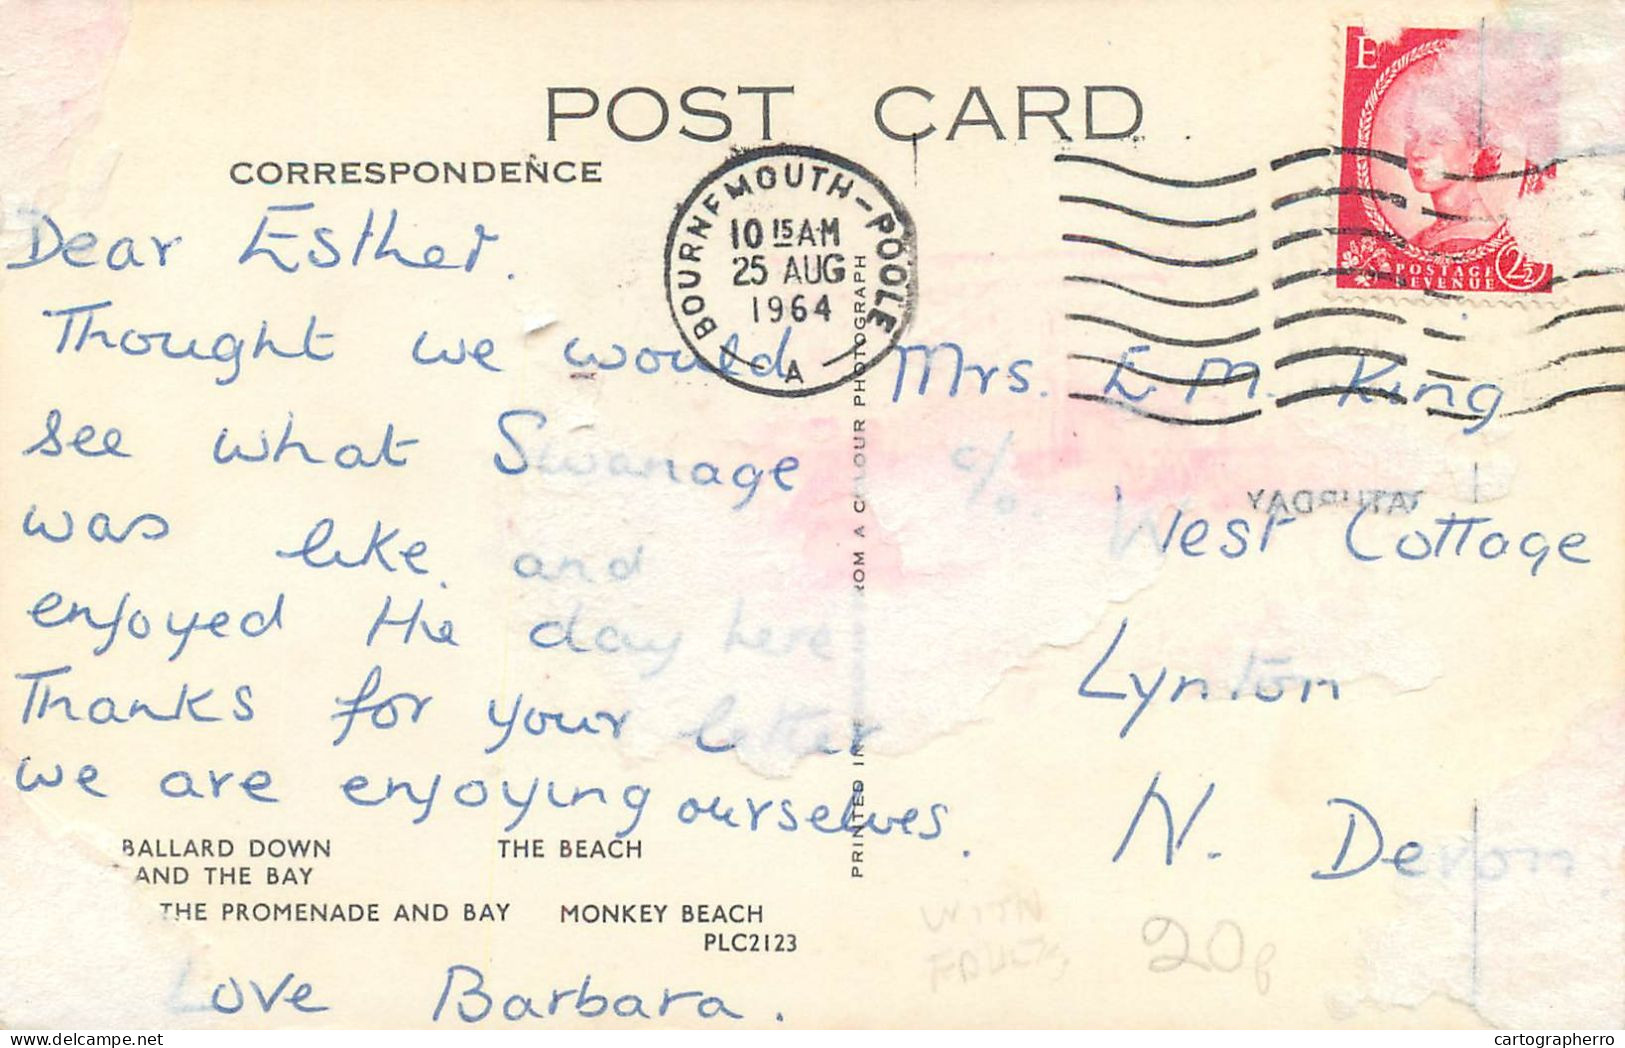 POST CARD
CORRESPONDENCE
BOURNEMOUTH-POOLE
10 15 AM
25 AUG
1964
A
E
POSTAGE
REVENUE
2½
Dear Esther.
Thought we would
see what Swanage
was like and
enjoyed the day here
Thanks for your letter
we are enjoying ourselves.
Love Barbara.
Mrs. E M. King
c/o.
West Cottage
Lynton
N. Devon.
BALLARD DOWN
AND THE BAY
THE BEACH
THE PROMENADE AND BAY
MONKEY BEACH
PLC2123
PRINTED IN
ROM A COLOUR PHOTOGRAPH
WITH
FAULTS
20p
cartographerro